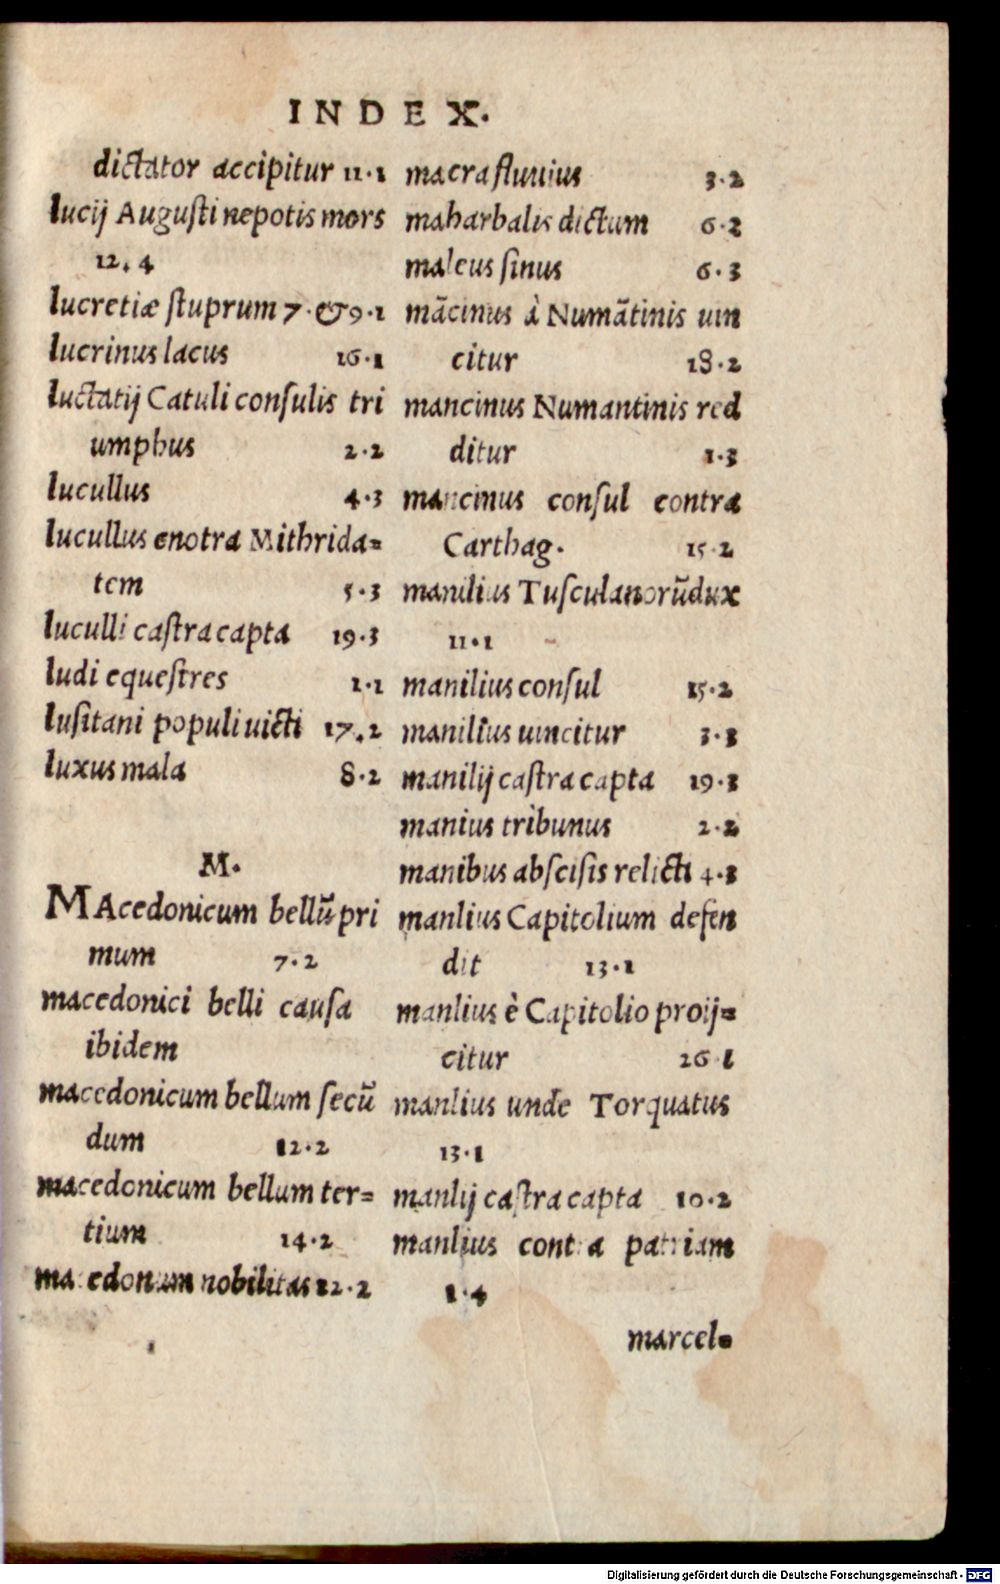 INDEX.
dictator accipitur 11·1
lucij Auguſti nepotis mors
12. 4
lucretiæ ſtuprum 7·&9·1
lucrinus lacus 16·1
luctatij Catuli conſulis tri
umphus 2·2
lucullus 4·3
lucullus enotra Mithrida=
tem 5·3
luculli caſtra capta 19·3
ludi equeſtres 1·1
luſitani populi uicti 17.2
luxus mala 8·2
M.
MAcedonicum bellũ pri
mum 7·2
macedonici belli cauſa
ibidem
macedonicum bellum ſecũ
dum 12·2
macedonicum bellum ter=
tium 14·2
macedonum nobilitas 12·2
macra fluuius 3·2
maharbalis dictum 6·2
maleus ſinus 6·3
mãcinus à Numãtinis uin
citur 18·2
mancinus Numantinis red
ditur 1·3
mancinus conſul contra
Carthag. 15·2
manilius Tuſculanorũ dux
11·1
manilius conſul 15·2
manilius uincitur 3·3
manilij caſtra capta 19·3
manius tribunus 2·2
manibus abſciſis relicti 4·3
manlius Capitolium defen
dit 13·1
manlius è Capitolio proij=
citur 26 1
manlius unde Torquatus
13·1
manlij caſtra capta 10·2
manlius contra patriam
1·4
marcel=
Digitalisierung gefördert durch die Deutsche Forschungsgemeinschaft - DFG